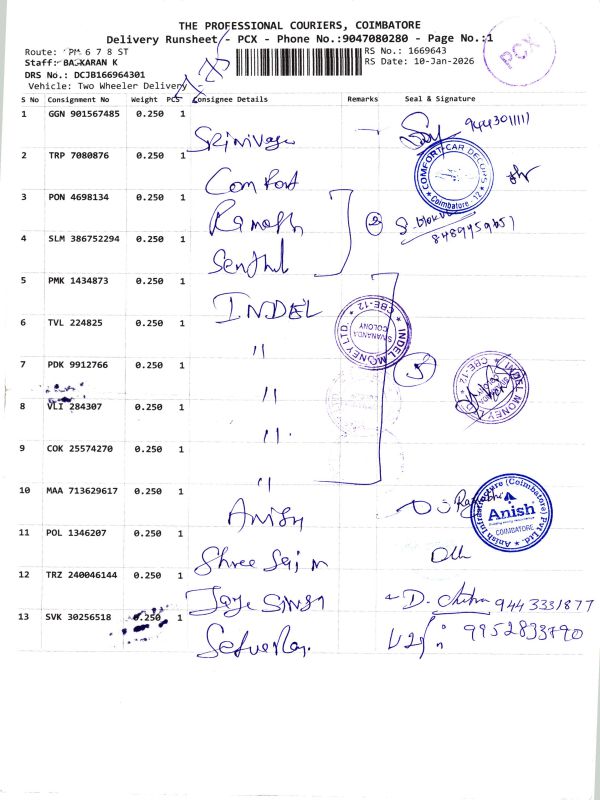 THE PROFESSIONAL COURIERS, COIMBATORE
Delivery Runsheet - PCX - Phone No.:9047080280 - Page No.:1
Route: PM 6 7 8 ST
RS No.: 1669643
Staff: BASKARAN K
RS Date: 10-Jan-2026
DRS No.: DCJB166964301
Vehicle: Two Wheeler Delivery
PCX
S No Consignment No Weight PCS Consignee Details Remarks Seal & Signature
1 GGN 901567485 0.250 1 Srinivasa 9443011111
2 TRP 7080876 0.250 1 Comfort
COMFORT CAR DECORS Coimbatore - 12
3 PON 4698134 0.250 1 Ramesh
4 SLM 386752294 0.250 1 Senthil
5 PMK 1434873 0.250 1 INDEL
6 TVL 224825 0.250 1 "
INDEL MONEY LTD. CBE-12 SIVANANDA COLONY
7 PDK 9912766 0.250 1 " 5
INDEL MONEY LTD. CBE-12
8 VLI 284307 0.250 1 "
9 COK 25574270 0.250 1 "
10 MAA 713629617 0.250 1 Anish
Anish Infrastructure (Coimbatore) Pvt Ltd. Anish COIMBATORE
11 POL 1346207 0.250 1 Shree Sai
12 TRZ 240046144 0.250 1 Jaye Singh D. 9443331877
13 SVK 30256518 0.250 1 9952833790